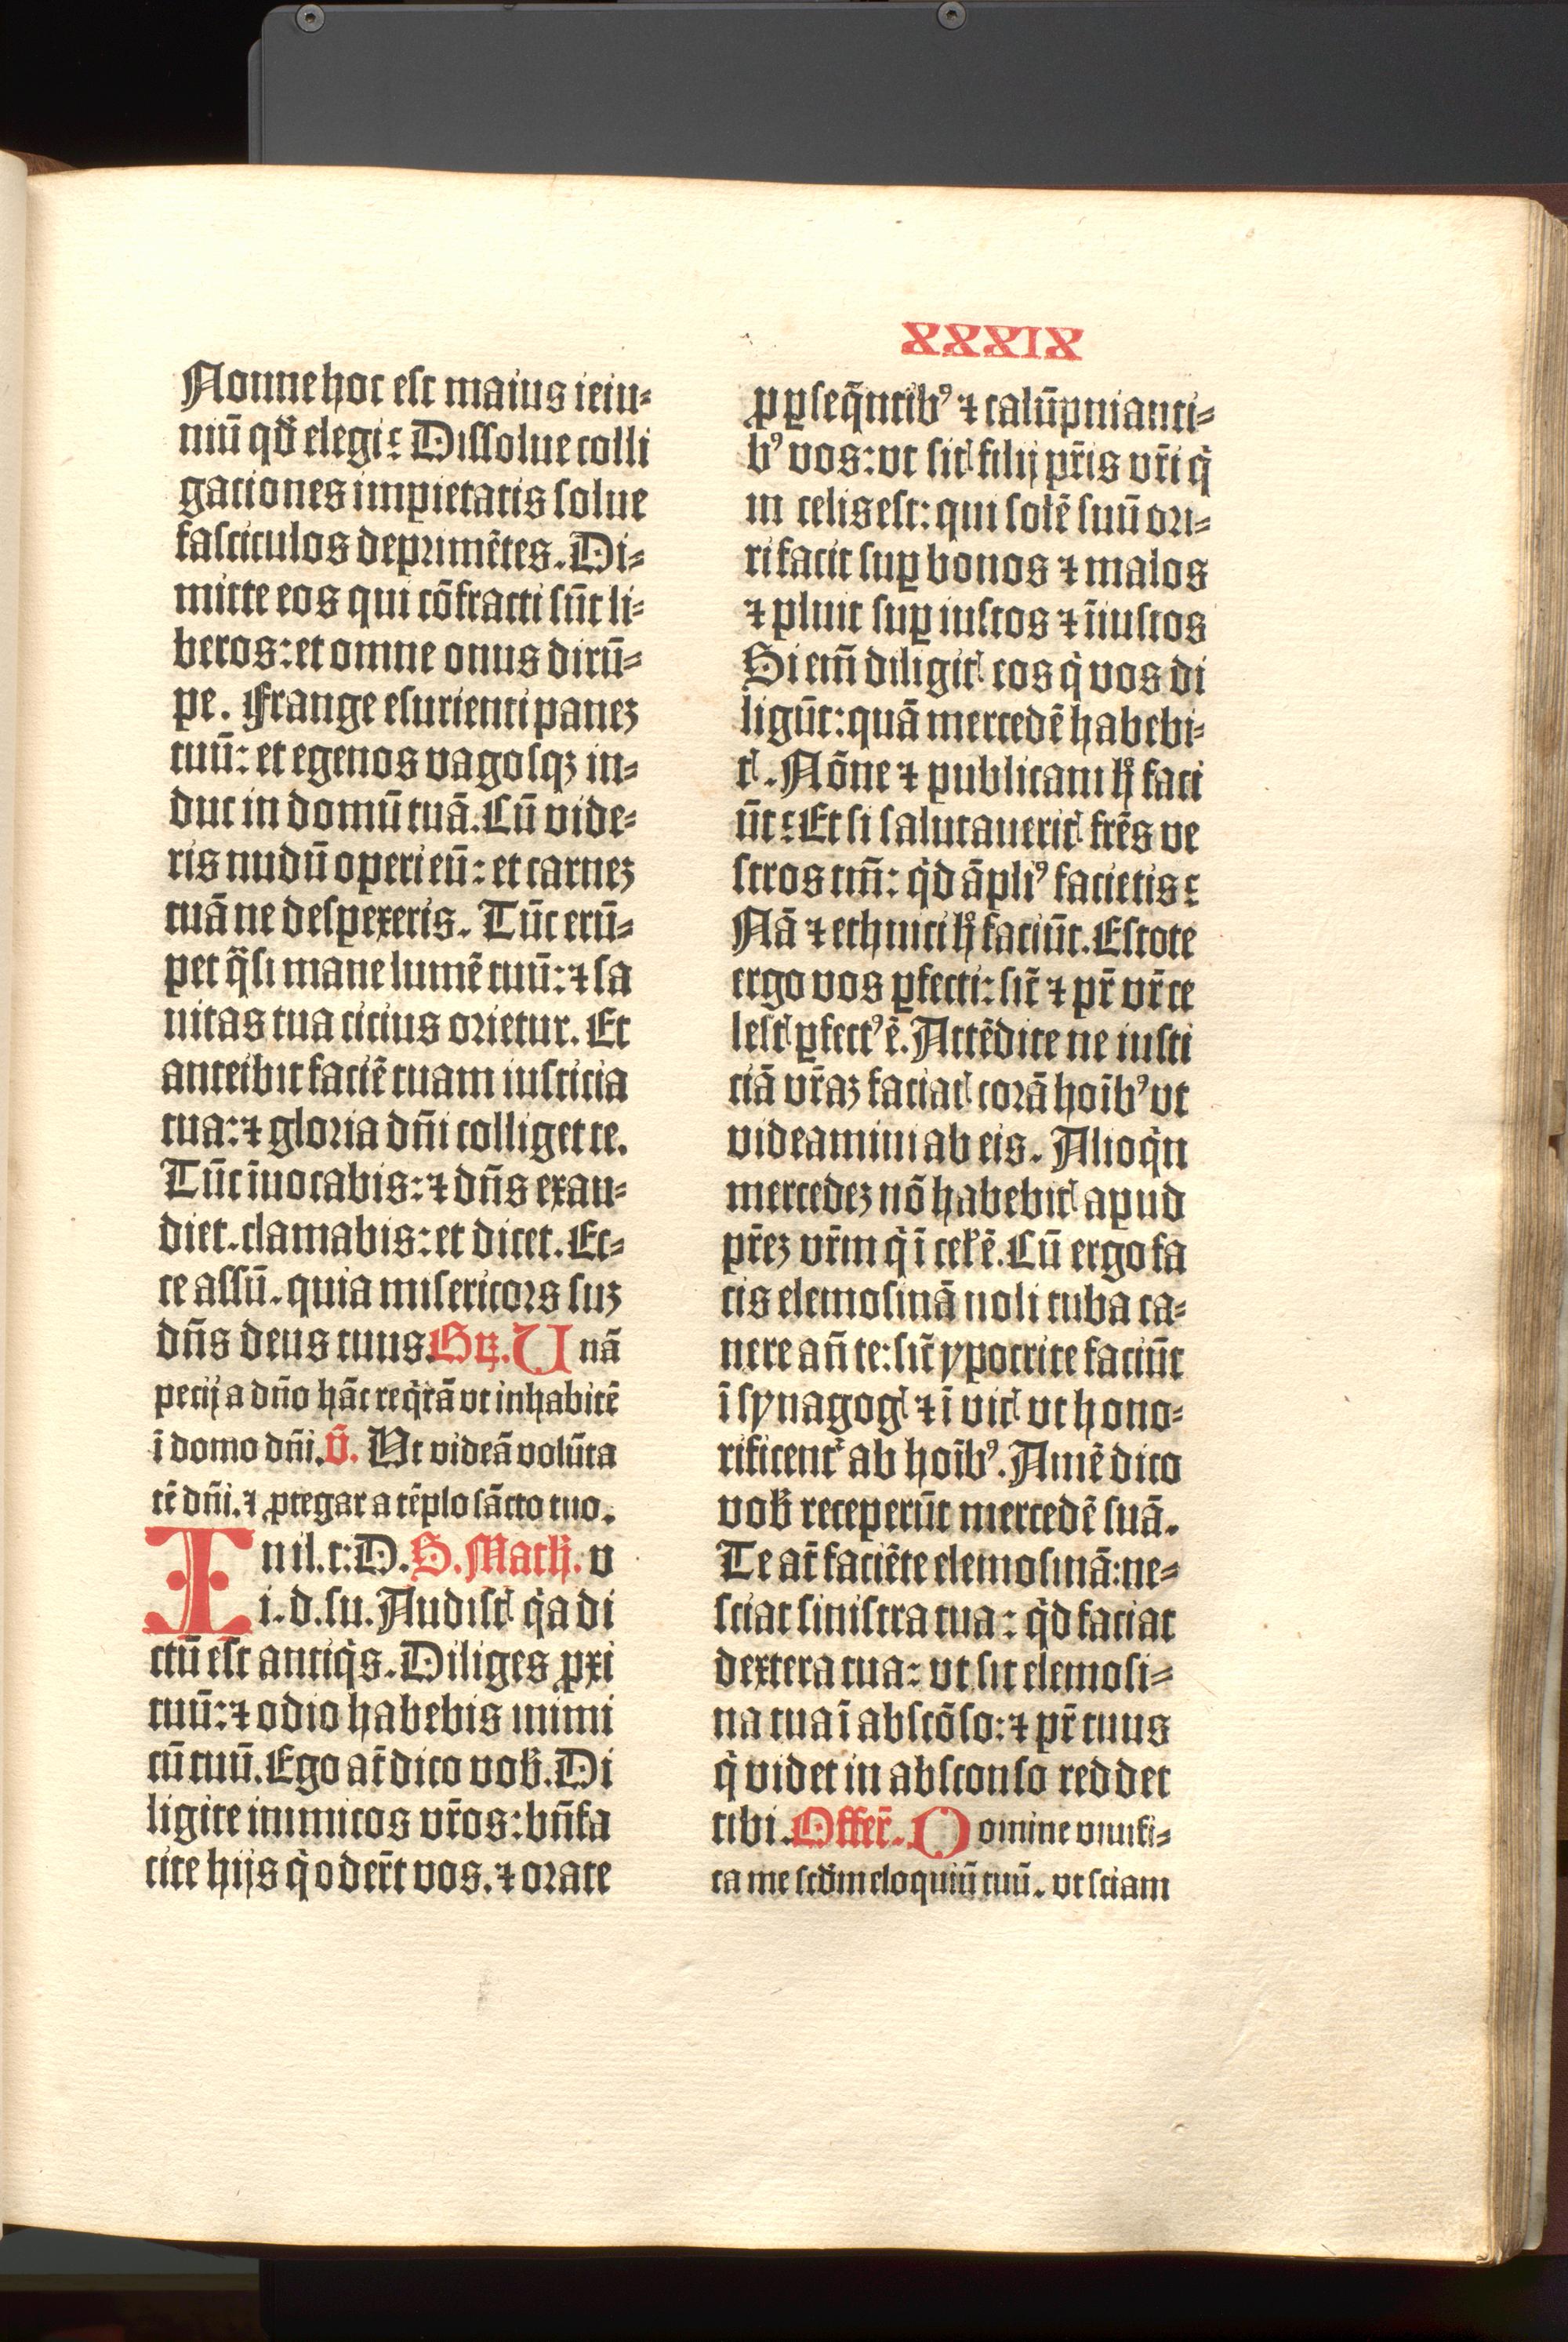 XXXIX
Nonne hoc est maius ieiu⸗
niū qd̄ elegi: Dissolue colli
gationes impietatis solue
fasciculos deprimētes. Di⸗
mitte eos qui cōfracti sūt li⸗
beros: et omne onus dirū⸗
pe. Frange esurienti panez
tuū: et egenos vagosqz in⸗
duc in domū tuā. Cū vide⸗
ris nudū operi eū: et carnez
tuā ne despexeris. Tūc erū⸗
pet q̄si mane lumē tuū: ⁊ sa
nitas tua citius orietur. Et
anteibit faciē tuam iusticia
tua: ⁊ gloria dn̄i colliget te.
Tūc īuocabis: ⁊ dn̄s exau⸗
diet. clamabis: et dicet. Ec⸗
ce assū. quia misericors suz
dn̄s deus tuus. Gr̄. Unā
petij a dn̄o hāc req̇rā vt inhabitē
ī domo dn̄i. v̄. Ut videā volūta
tē dn̄i. ⁊ ꝓtegar a tēplo sācto tuo.
In il. t: D. S. Math. v
i. d. su. Audistꝭ q̇a di
ctū est antiq̇s. Diliges ꝓxi
tuū: ⁊ odio habebis inimi
cū tuū. Ego at̄ dico vob̄. Di
ligite inimicos vr̄os: bn̄fa
cite hijs q̇ oder̄t vos. ⁊ orate
ꝓ ꝑseq̄ntibꝰ ⁊ calūpnianti⸗
bꝰ vos: vt sitꝭ filij pr̄is vr̄i q̇
in celis est: qui solē suū ori⸗
ri facit suꝑ bonos ⁊ malos
⁊ pluit suꝑ iustos ⁊ īiustos
Si em̄ diligitꝭ eos q̇ vos di
ligūt: quā mercedē habebi⸗
tꝭ. Nōne ⁊ publicani hͦ faci
ūt: Et si salutaueritꝭ fr̄es ve
stros tm̄: q̇d āpliꝰ facietis:
Nā ⁊ ethnici hͦ faciūt. Estote
ergo vos ꝑfecti: sic̄ ⁊ pr̄ vr̄ ce
lestꝭ ꝑfectꝰ ē. Attēdite ne iusti
ciā vr̄az faciatꝭ corā hoībꝰ vt
videamini ab eis. Alioq̇n
mercedez nō habebitꝭ apud
pr̄ez vr̄m q̇ ī cel̄ ē. Cū ergo fa
cis elemosinā noli tuba ca⸗
nere an̄ te: sic̄ ypocrite faciūt
ī synagogꝭ ⁊ ī vicꝭ vt hono⸗
rificent᷑ ab hoībꝰ. Amē dico
vob̄ receperūt mercedē suā.
Te at̄ faciēte elemosinā: ne⸗
sciat sinistra tua: q̇d faciat
dextera tua: vt sit elemosi⸗
na tua ī abscōso: ⁊ pr̄ tuus
q̇ videt in absconso reddet
tibi. Offer̄. Domine viuifi⸗
ca me scd̄m eloquiū tuū. vt sciam